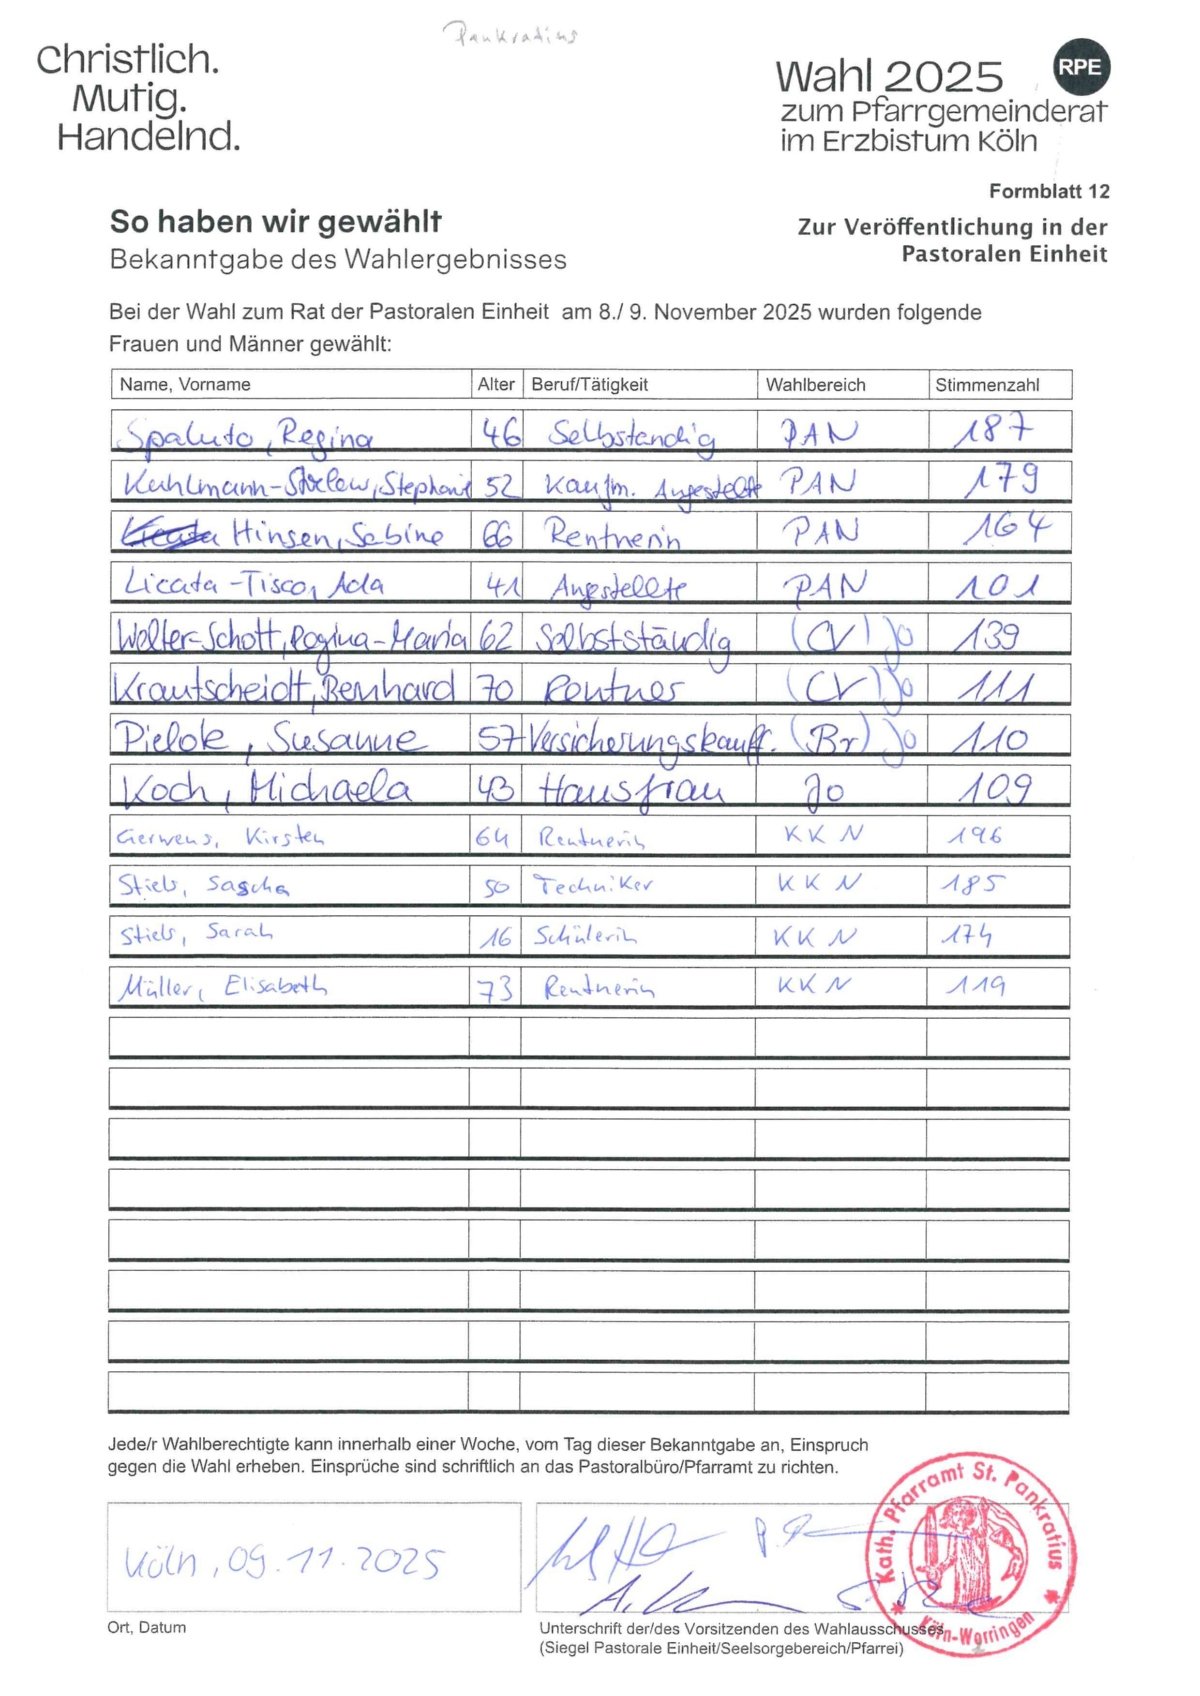 Pankratius
Christlich.
Mutig.
Handelnd.
Wahl 2025
RPE
zum Pfarrgemeinderat
im Erzbistum Köln
Formblatt 12
So haben wir gewählt
Bekanntgabe des Wahlergebnisses
Zur Veröffentlichung in der
Pastoralen Einheit
Bei der Wahl zum Rat der Pastoralen Einheit am 8./ 9. November 2025 wurden folgende
Frauen und Männer gewählt:
Name, Vorname Alter Beruf/Tätigkeit Wahlbereich Stimmenzahl
Spaluto, Regina 46 Selbständig PAN 187
Kuhlmann- 52 Kaufm. Angestellte PAN 179
Hinsen, Sabine 66 Rentnerin PAN 164
Licata-Tisco, Ada 41 Angestellte PAN 101
Welter-Schott, Regina-Maria 62 Selbstständig (CV) Jo 139
Krautscheidt, Bernhard 70 Rentner (CV) Jo 111
Pielok, Susanne 57 Versicherungskauffr. (Br) Jo 110
Koch, Michaela 43 Hausfrau Jo 109
Gerwens, Kirsten 64 Rentnerin KKN 196
Stiels, Sascha 50 Techniker KKN 185
Stiels, Sarah 16 Schülerin KKN 174
Müller, Elisabeth 73 Rentnerin KKN 119
Jede/r Wahlberechtigte kann innerhalb einer Woche, vom Tag dieser Bekanntgabe an, Einspruch
gegen die Wahl erheben. Einsprüche sind schriftlich an das Pastoralbüro/Pfarramt zu richten.
Köln, 09.11.2025
Kath. Pfarramt St. Pankratius
Köln-Worringen
Ort, Datum
Unterschrift der/des Vorsitzenden des Wahlausschusses
(Siegel Pastorale Einheit/Seelsorgebereich/Pfarrei)